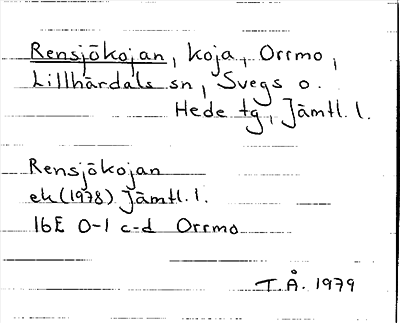 Rensjökojan, koja, Orrmo,
Lillhärdals sn, Svegs o.
Hede tg, Jämtl. l.
Rensjökojan
ek (1978) Jämtl. l.
16E 0-1 c-d Orrmo
T.Å. 1979